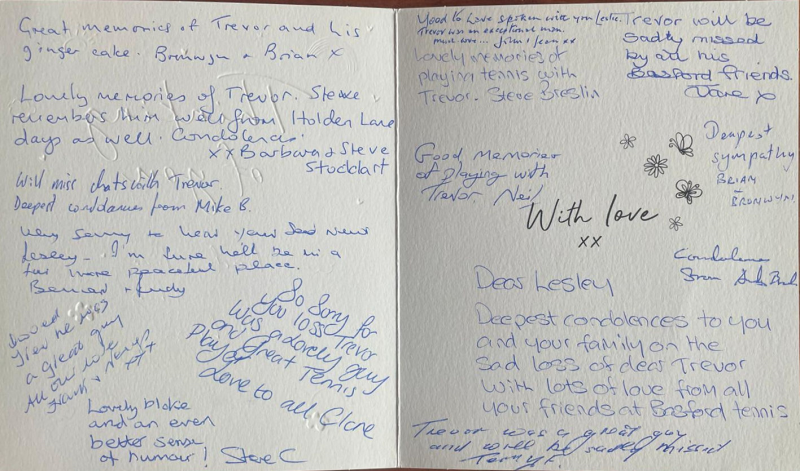 Great memories of Trevor and his
ginger cake. Bronwyn & Brian x
Lovely memories of Trevor. Steve
remembers him well from Holden Lane
days as well. Condolences
xx Barbara & Steve
Stoddart
Will miss chats with Trevor.
Deepest condolences from Mike B.
Very sorry to hear your sad news
Lesley - I'm sure he'll be in a
far more peaceful place.
a great guy
All our love
So Sorry for
you loss Trevor
was a lovely guy
and
Play Great Tennis
Love to all Clare
Lovely bloke
and an even
better sense
of humour! Steve C
Good to have spoken with you Leslie.
Trevor was an exceptional man.
much love... John & Jean xx
Trevor will be
sadly missed
by all his
Basford friends.
x
Lovely memories of
playing tennis with
Trevor. Steve Breslin
Good Memories
of playing with
Trevor Neil
Deepest
sympathy
BRIAN
+
BRONWYN.
With love
xx
Condolences
from
Dear Lesley
Deepest condolences to you
and your family on the
sad loss of dear Trevor
With lots of love from all
your friends at Basford tennis
Trevor was a great guy
and will be sadly missed
Terry F.